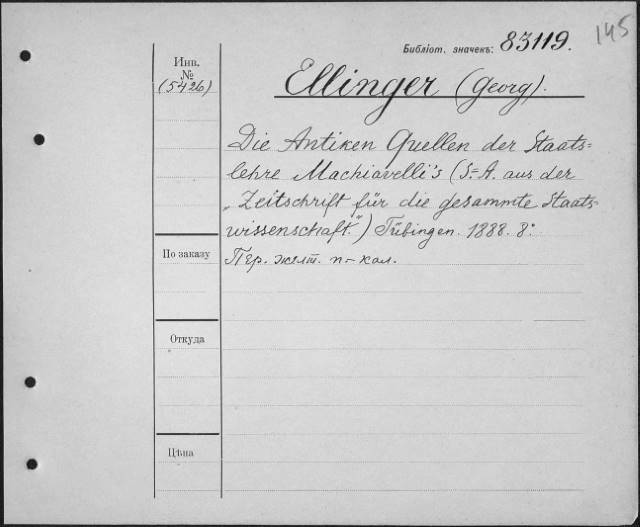 145
Библіот. значекъ: 83119.
Инв.
№
(5426)
Ellinger (Georg).
Die Antiken Quellen der Staats=
lehre Machiavelli's (S=A. aus der
„Zeitschrift für die gesammte Staats-
wissenschaft.") Tübingen. 1888. 8º
Пер. желт. п-кол.
По заказу
Откуда
Цѣна